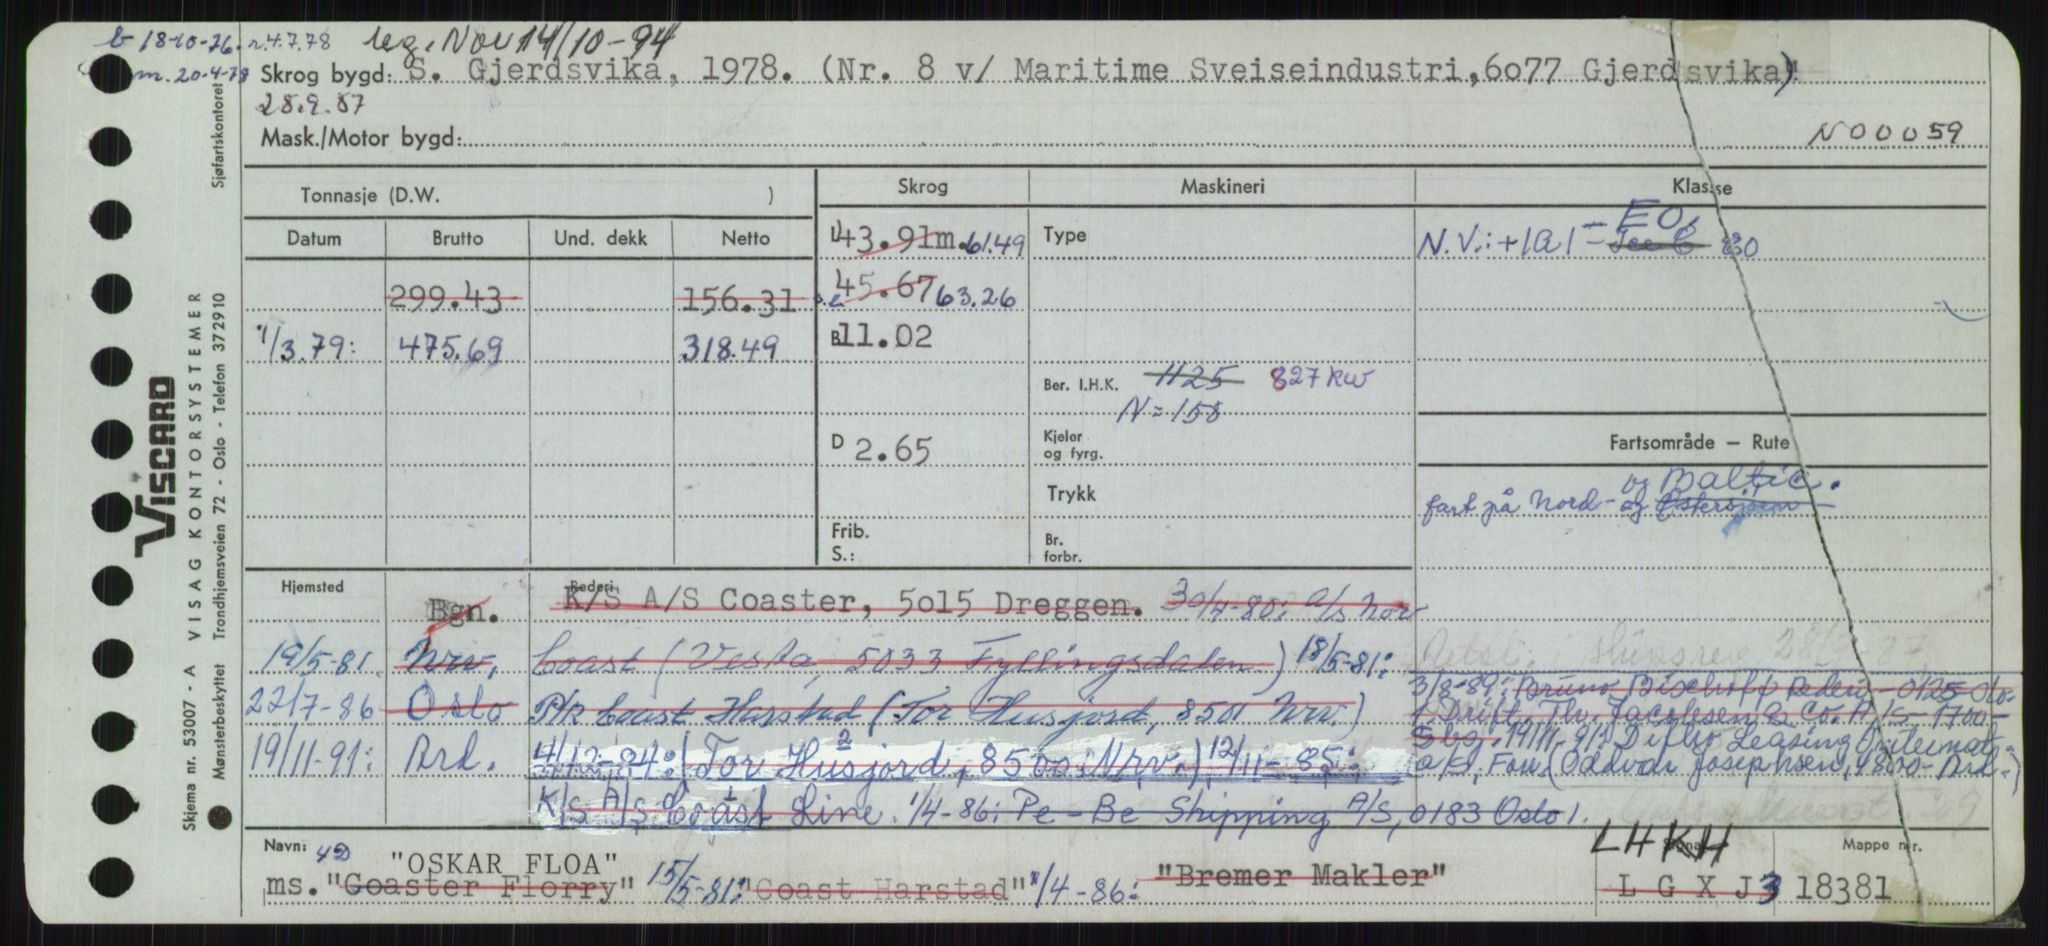 b 18-10-76. r. 4.7.78 reg. Nov 14/10-94
m. 20-4-78 Skrog bygd: S. Gjerdsvika, 1978. (Nr. 8 v/ Maritime Sveiseindustri,6o77 Gjerdsvika)
28.9.87
Mask./Motor bygd: N00059
Tonnasje (D.W. ) Skrog Maskineri Klasse
Datum Brutto Und. dekk Netto
L 43.91m. 61.49 Type N.V.: +1A1 - Ice C - EO
299.43 156.31 45.67 63.26
1/3.79: 475.69 318.49 B 11.02
Ber. I.H.K. 1125 827 kw
N = 158
D 2.65 Kjeler og fyrg. Fartsområde — Rute
Trykk fart på Nord- og Østersjøen og Baltic.
Frib. S.: Br. forbr.
Hjemsted Rederi
Bgn. K/S A/S Coaster, 5o15 Dreggen. 30/4-80: A/S Nor
19/5-81. Nrv. Coast (Vesta, 5033 Fyllingsdalen) 18/5-81:
22/7-86 Oslo P/R Coast Harstad (Tor Husjord, 8501 Nrv.)
19/11-91: Ard. 4/12-84: (Tor Husjord, 8500 Nrv.) 12/11-85:
K/S A/S Coast Line. 1/4-86: Pe-Be Shipping A/S, 0183 Oslo 1.
3/8-89: Bruno Bischoff Rederi - 0125 Oslo-
Drift. Thv. Jacobsen & Co. A/S - 1700-
Sbg. 19/11-91: Leasing
(Oddvar Josephsen, 4800- Ard.)
Navn: "OSKAR FLOA" LHKH Mappe nr.
ms. "Coaster Florry" 15/5-81: "Coast Harstad" 1/4-86: "Bremer Makler" L G X J 3 18381
VISCARD
VISAG KONTORSYSTEMER
Skjema nr. 53007 - A
Mønsterbeskyttet Trondhjemsveien 72 - Oslo - Telefon 372910 Sjøfartskontoret